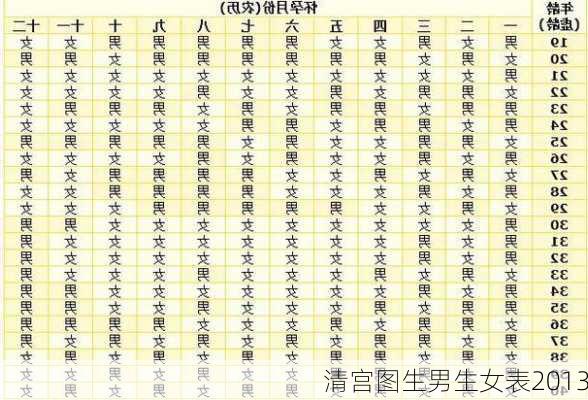 年龄(虚龄) 怀孕月份(农历)
一 二 三 四 五 六 七 八 九 十 十一 十二
19 男 女 男 女 女 男 男 男 男 男 女 女
20 女 男 女 男 男 男 男 男 男 女 男 男
21 男 女 女 女 女 女 女 女 女 女 女 女
22 女 男 男 女 男 女 女 男 女 女 女 女
23 男 男 女 男 男 女 男 女 男 男 男 女
24 男 女 男 男 女 男 男 女 女 女 女 女
25 女 男 男 女 女 男 女 男 男 男 男 男
26 男 女 男 女 女 男 女 男 女 女 女 女
27 女 男 女 男 女 女 男 男 男 男 女 男
28 男 女 男 女 女 女 男 男 男 男 女 女
29 女 男 女 女 男 男 男 男 男 女 女 女
30 男 女 女 女 女 女 女 女 女 女 男 男
31 男 女 男 女 女 女 女 女 女 女 女 男
32 男 女 男 女 女 女 女 女 女 女 女 男
33 女 男 女 男 女 女 女 男 女 女 女 男
34 男 女 男 女 女 女 女 女 女 女 男 男
35 男 男 女 男 女 女 女 男 女 女 男 男
36 女 男 男 女 男 女 女 女 男 男 男 男
37 男 女 男 男 女 男 女 男 女 男 女 男
38 女 男 女 男 男 女 男 女 男 女 男 女
清宫图生男生女表2013